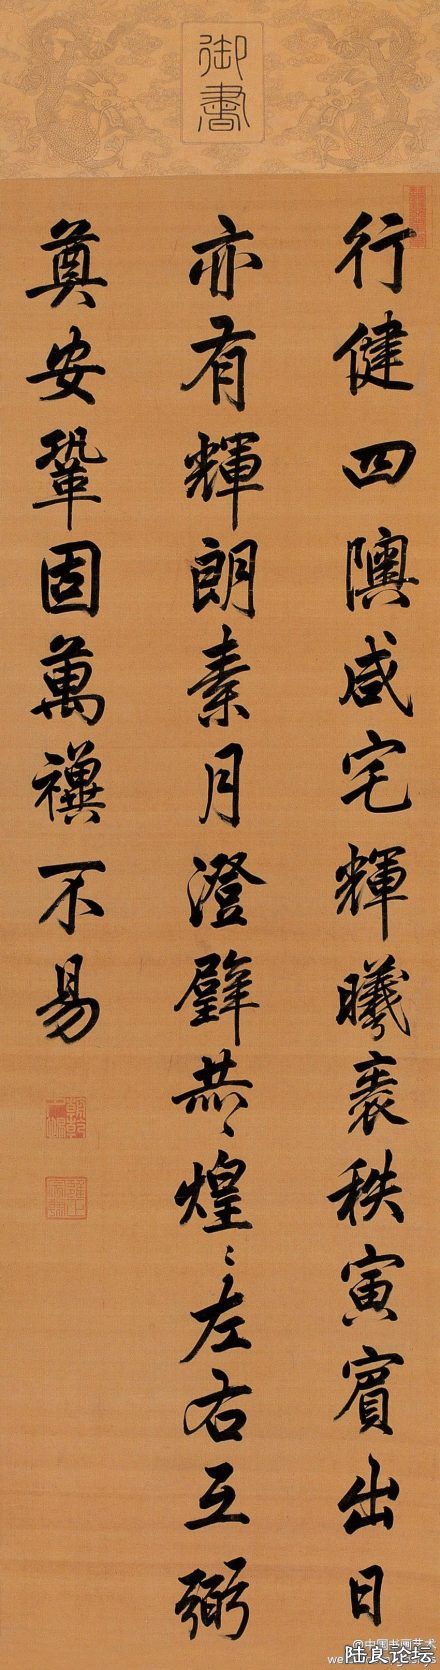 御書
行健四隩咸宅輝曦秩寅賓出日
亦有輝朗素月澄璧赫〻煌〻左右互弼
奠安鞏固萬禩不易
@中国书画艺术
陆良论坛